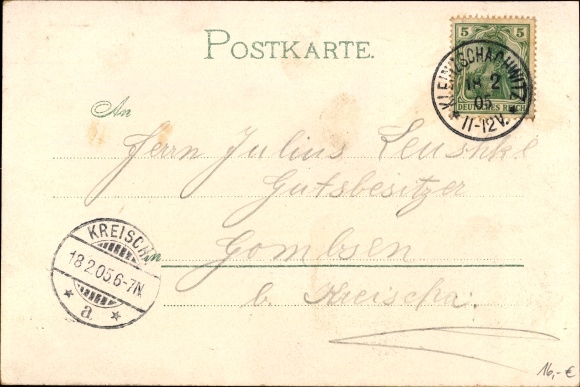 POSTKARTE.
5 5
DEUTSCHES REICH
KLEINZSCHACHWITZ
18 2
05
* 11-12V. *
An
Herrn Julius Leuschke
Gutsbesitzer
KREISCHA
18.2.05.6-7N.
* a *
in Gombsen
b. Kreischa.
16,- €